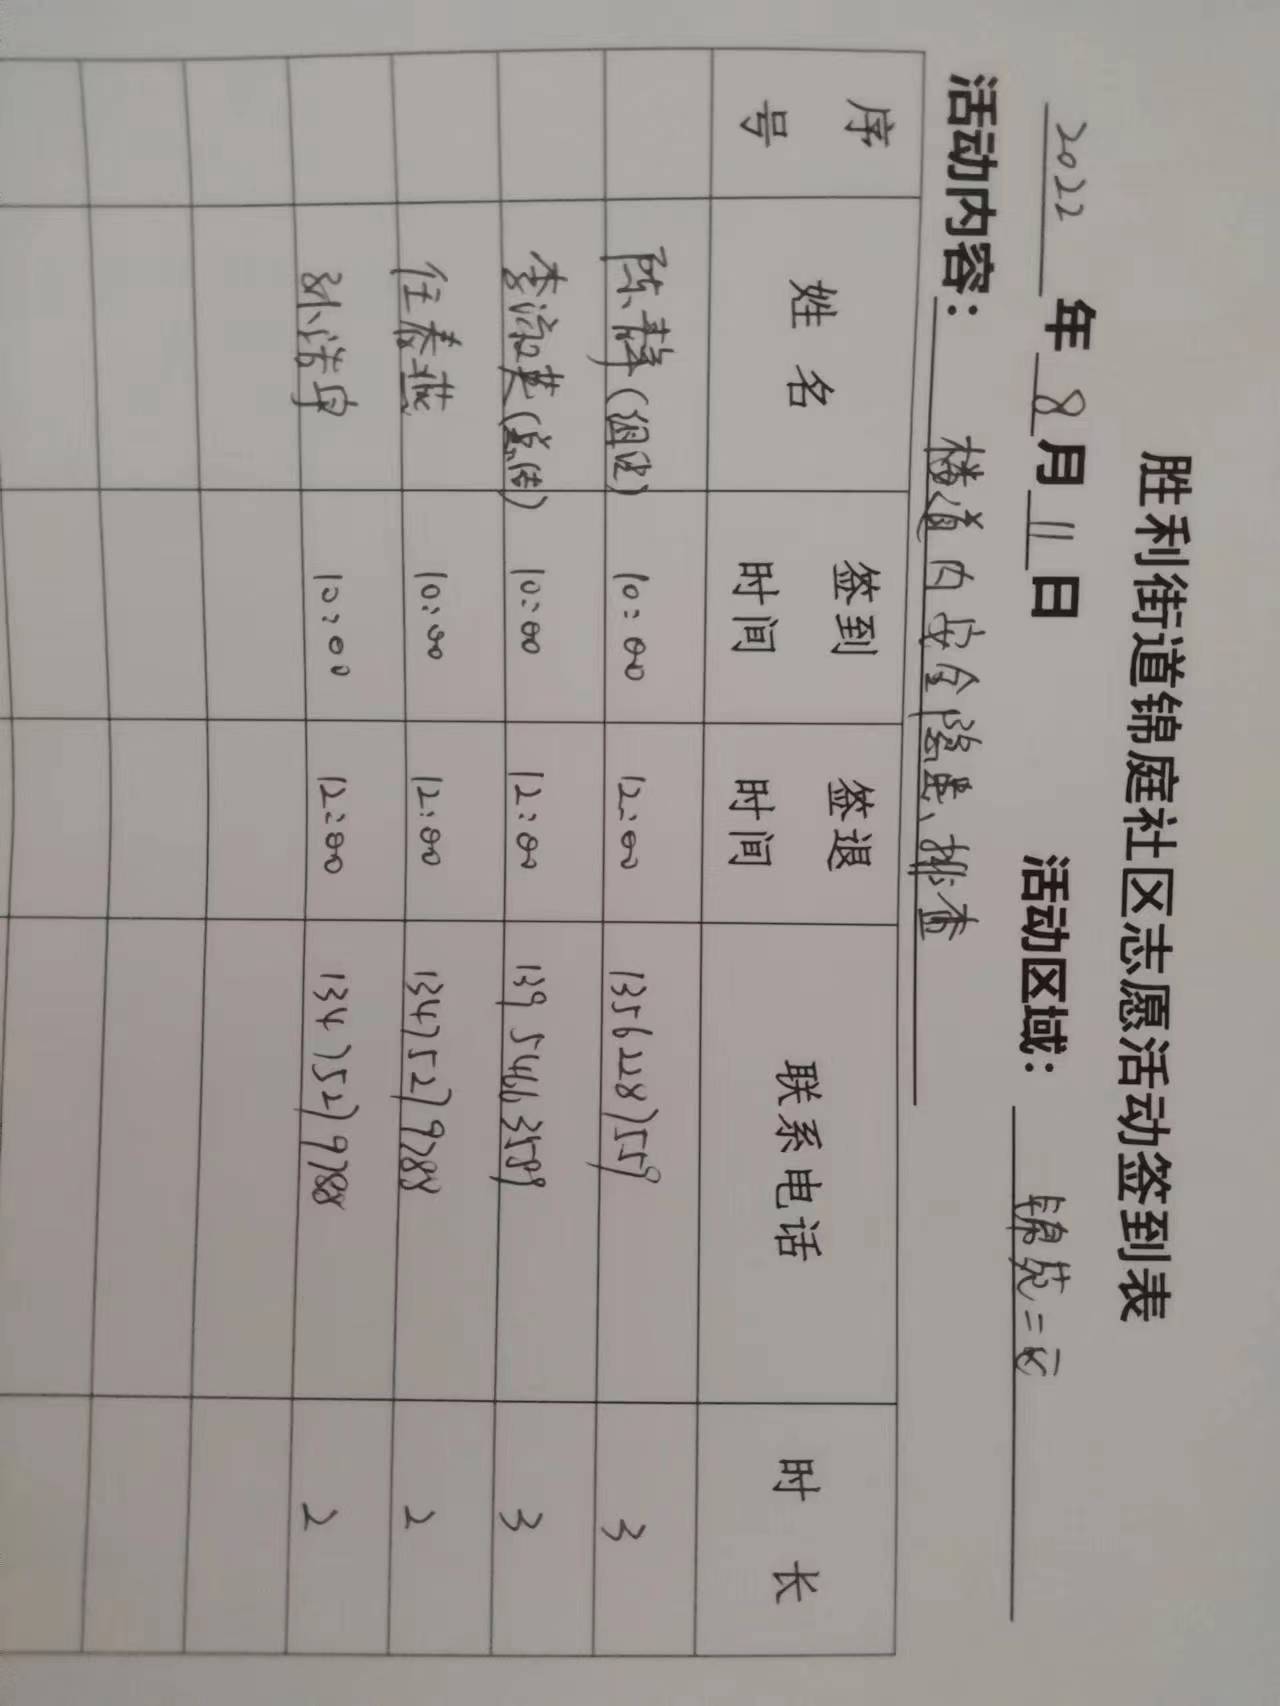 胜利街道锦庭社区志愿活动签到表
2022年8月11日 活动区域: 锦苑二区
活动内容: 楼道内安全隐患排查
序号 姓名 签到时间 签退时间 联系电话 时长
陈 (组长) 10:00 12:00 13562287559 3
李淑英(党员) 10:00 12:00 13954663589 3
任春燕 10:00 12:00 13475279788 2
孙浩宇 10:00 12:00 13475279788 2